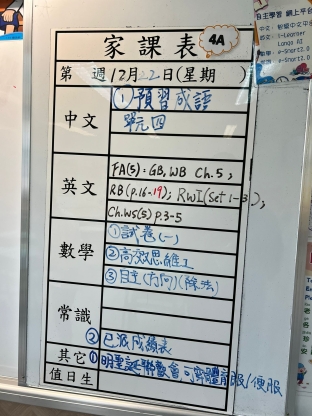 家課表
4A
第 週 12月22日(星期 )
中文
①預習成語
單元四
英文
FA(5): GB, WB Ch.5;
RB(p.16-19); RWI(Set 1-3);
Ch.WS(5) p.3-5
數學
①試卷(一)
②高效思維工
③自主(方向)(除法)
常識
②已派成績表
其它
①明聖誕聯歡會,可穿體育服/便服
值日生
自主學習 網上平台